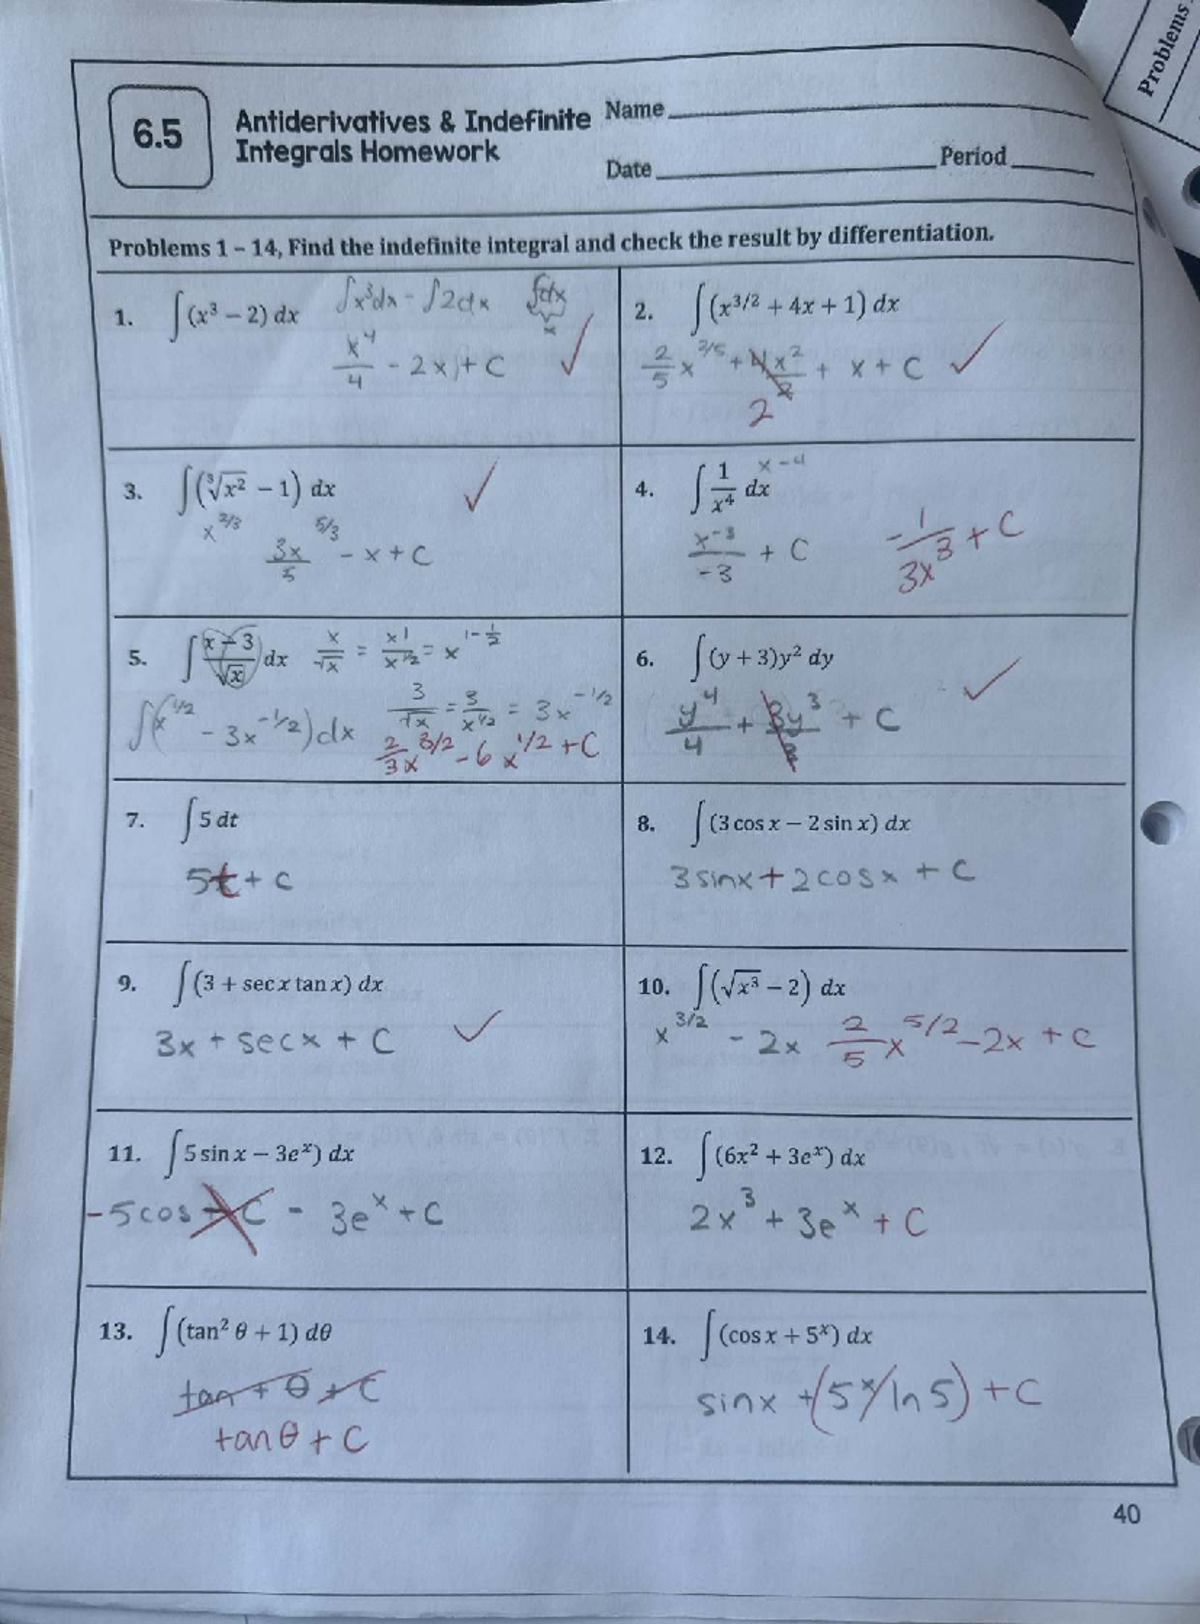 Problems
6.5
Antiderivatives & Indefinite
Integrals Homework
Name
Date
Period
Problems 1 – 14, Find the indefinite integral and check the result by differentiation.
1. ∫(x³ − 2) dx
∫x³dx - ∫2dx ∫dx
x
x⁴/4 - 2x + C ✓
2. ∫(x^{3/2} + 4x + 1) dx
2/5 x^{2/5} + 4x²/2 + x + C ✓
2
3. ∫(∛x² − 1) dx ✓
x^{2/3}
3x^{5/3}/5 - x + C
4. ∫ 1/x⁴ dx x^{-4}
x^{-3}/-3 + C
-1/3x³ + C
5. ∫ (x − 3)/√x dx x/√x = x¹/x^{1/2} = x^{1-1/2}
3/√x = 3/x^{1/2} = 3x^{-1/2}
∫(x^{1/2} - 3x^{-1/2})dx
2/3x^{3/2} - 6x^{1/2} + C
6. ∫(y + 3)y² dy ✓
y⁴/4 + 3y³/3 + C
7. ∫5 dt
5t + C
8. ∫(3 cos x − 2 sin x) dx
3sinx + 2cosx + C
9. ∫(3 + sec x tan x) dx
3x + secx + C ✓
10. ∫(√x³ − 2) dx
x^{3/2} - 2x 2/5 x^{5/2} - 2x + C
11. ∫5 sin x − 3eˣ) dx
-5cos + C - 3eˣ + C
12. ∫(6x² + 3eˣ) dx
2x³ + 3eˣ + C
13. ∫(tan² θ + 1) dθ
tan + θ + C
tanθ + C
14. ∫(cos x + 5ˣ) dx
sinx + (5ˣ/ln5) + C
40